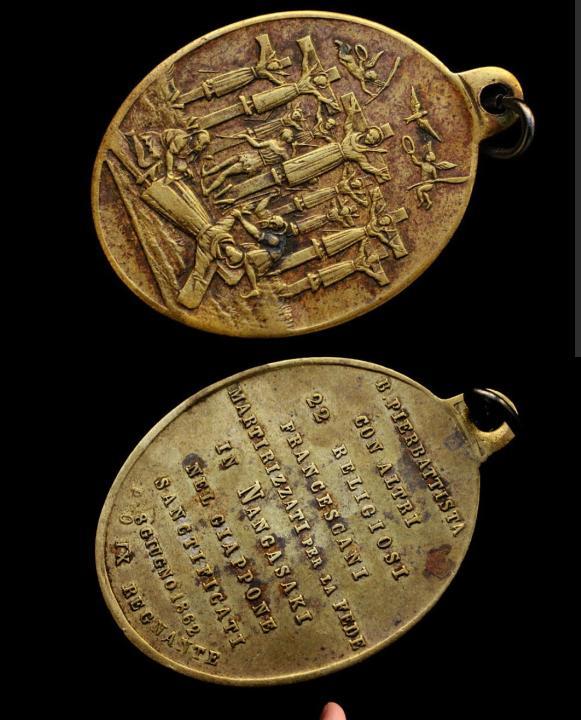 B. PIERBATTISTA
CON ALTRI
22 RELIGIOSI
FRANCESCANI
MARTIRIZZATI PER LA FEDE
IN NANGASAKI
NEL GIAPPONE
SANCTIFICATI
8 GIUGNO 1862
IX REGNANTE